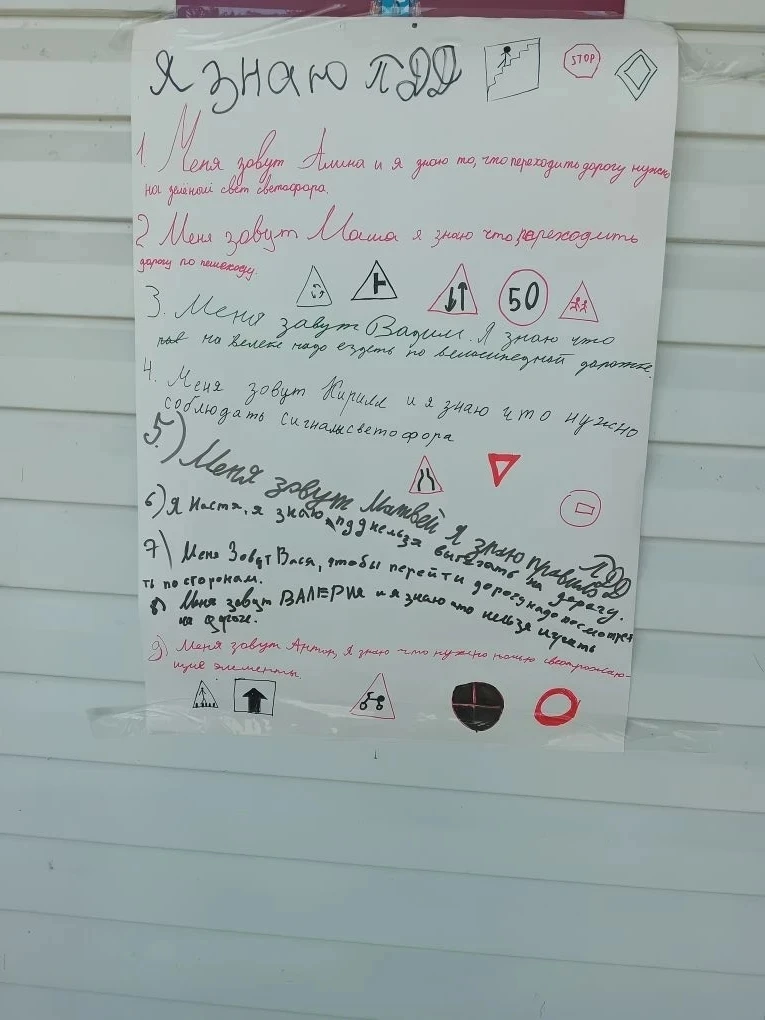 Я знаю ПДД
STOP
1. Меня зовут Амина и я знаю то, что переходить дорогу нужно
на зелёный свет светофора.
2 Меня зовут Маша я знаю что переходить
дорогу по пешеходу.
50
3. Меня завут Вадим. Я знаю что
на велеке надо ездеть по велосипедной дорожке.
4. Меня зовут Кирилл и я знаю что нужно
соблюдать сигналы светофора
5.) Меня зовут Матвей Я знаю правила ПДД
6) Я Настя, я знаю пдд нельзя выбегать на дорогу.
7) Меня Зовут Вася, чтобы перейти дорогу надо посмотре
ть по сторонам.
8) Меня зовут ВАЛЕРИЯ и я знаю что нельзя играть
на дороге.
9) Меня зовут Антон, Я знаю что нужно ношу светоотражаю-
щие элементы.